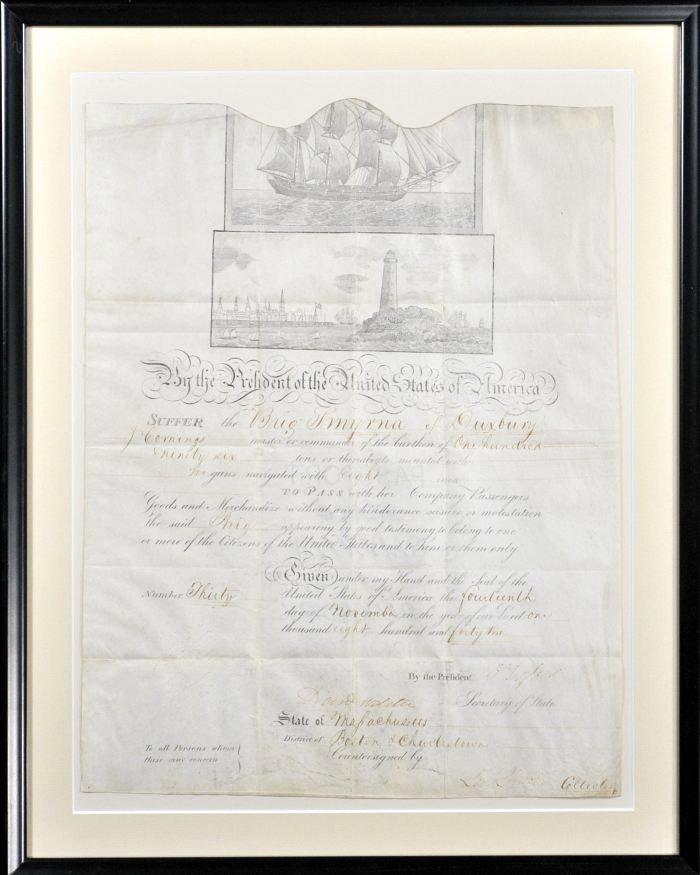 By the President of the United States of America
SUFFER the Brig Smyrna of Duxbury
master or commander of the burthen of One hundred
Ninety six tons or thereabouts mounted with
No guns navigated with Eight men
TO PASS with her Company Passengers
Goods and Merchandize without any hinderance seisure or molestation
the said Brig appearing by good testimony to belong to one
or more of the Citizens of the United States and to him or them only
Given under my Hand and the Seal of the
Number Thirty United States of America the fourteenth
day of November in the year of our Lord one
thousand eight hundred and forty
By the President
Secretary of State
State of Massachusetts
District of Boston & Charlestown
To all Persons whom
these may concern
Countersigned by
Collector